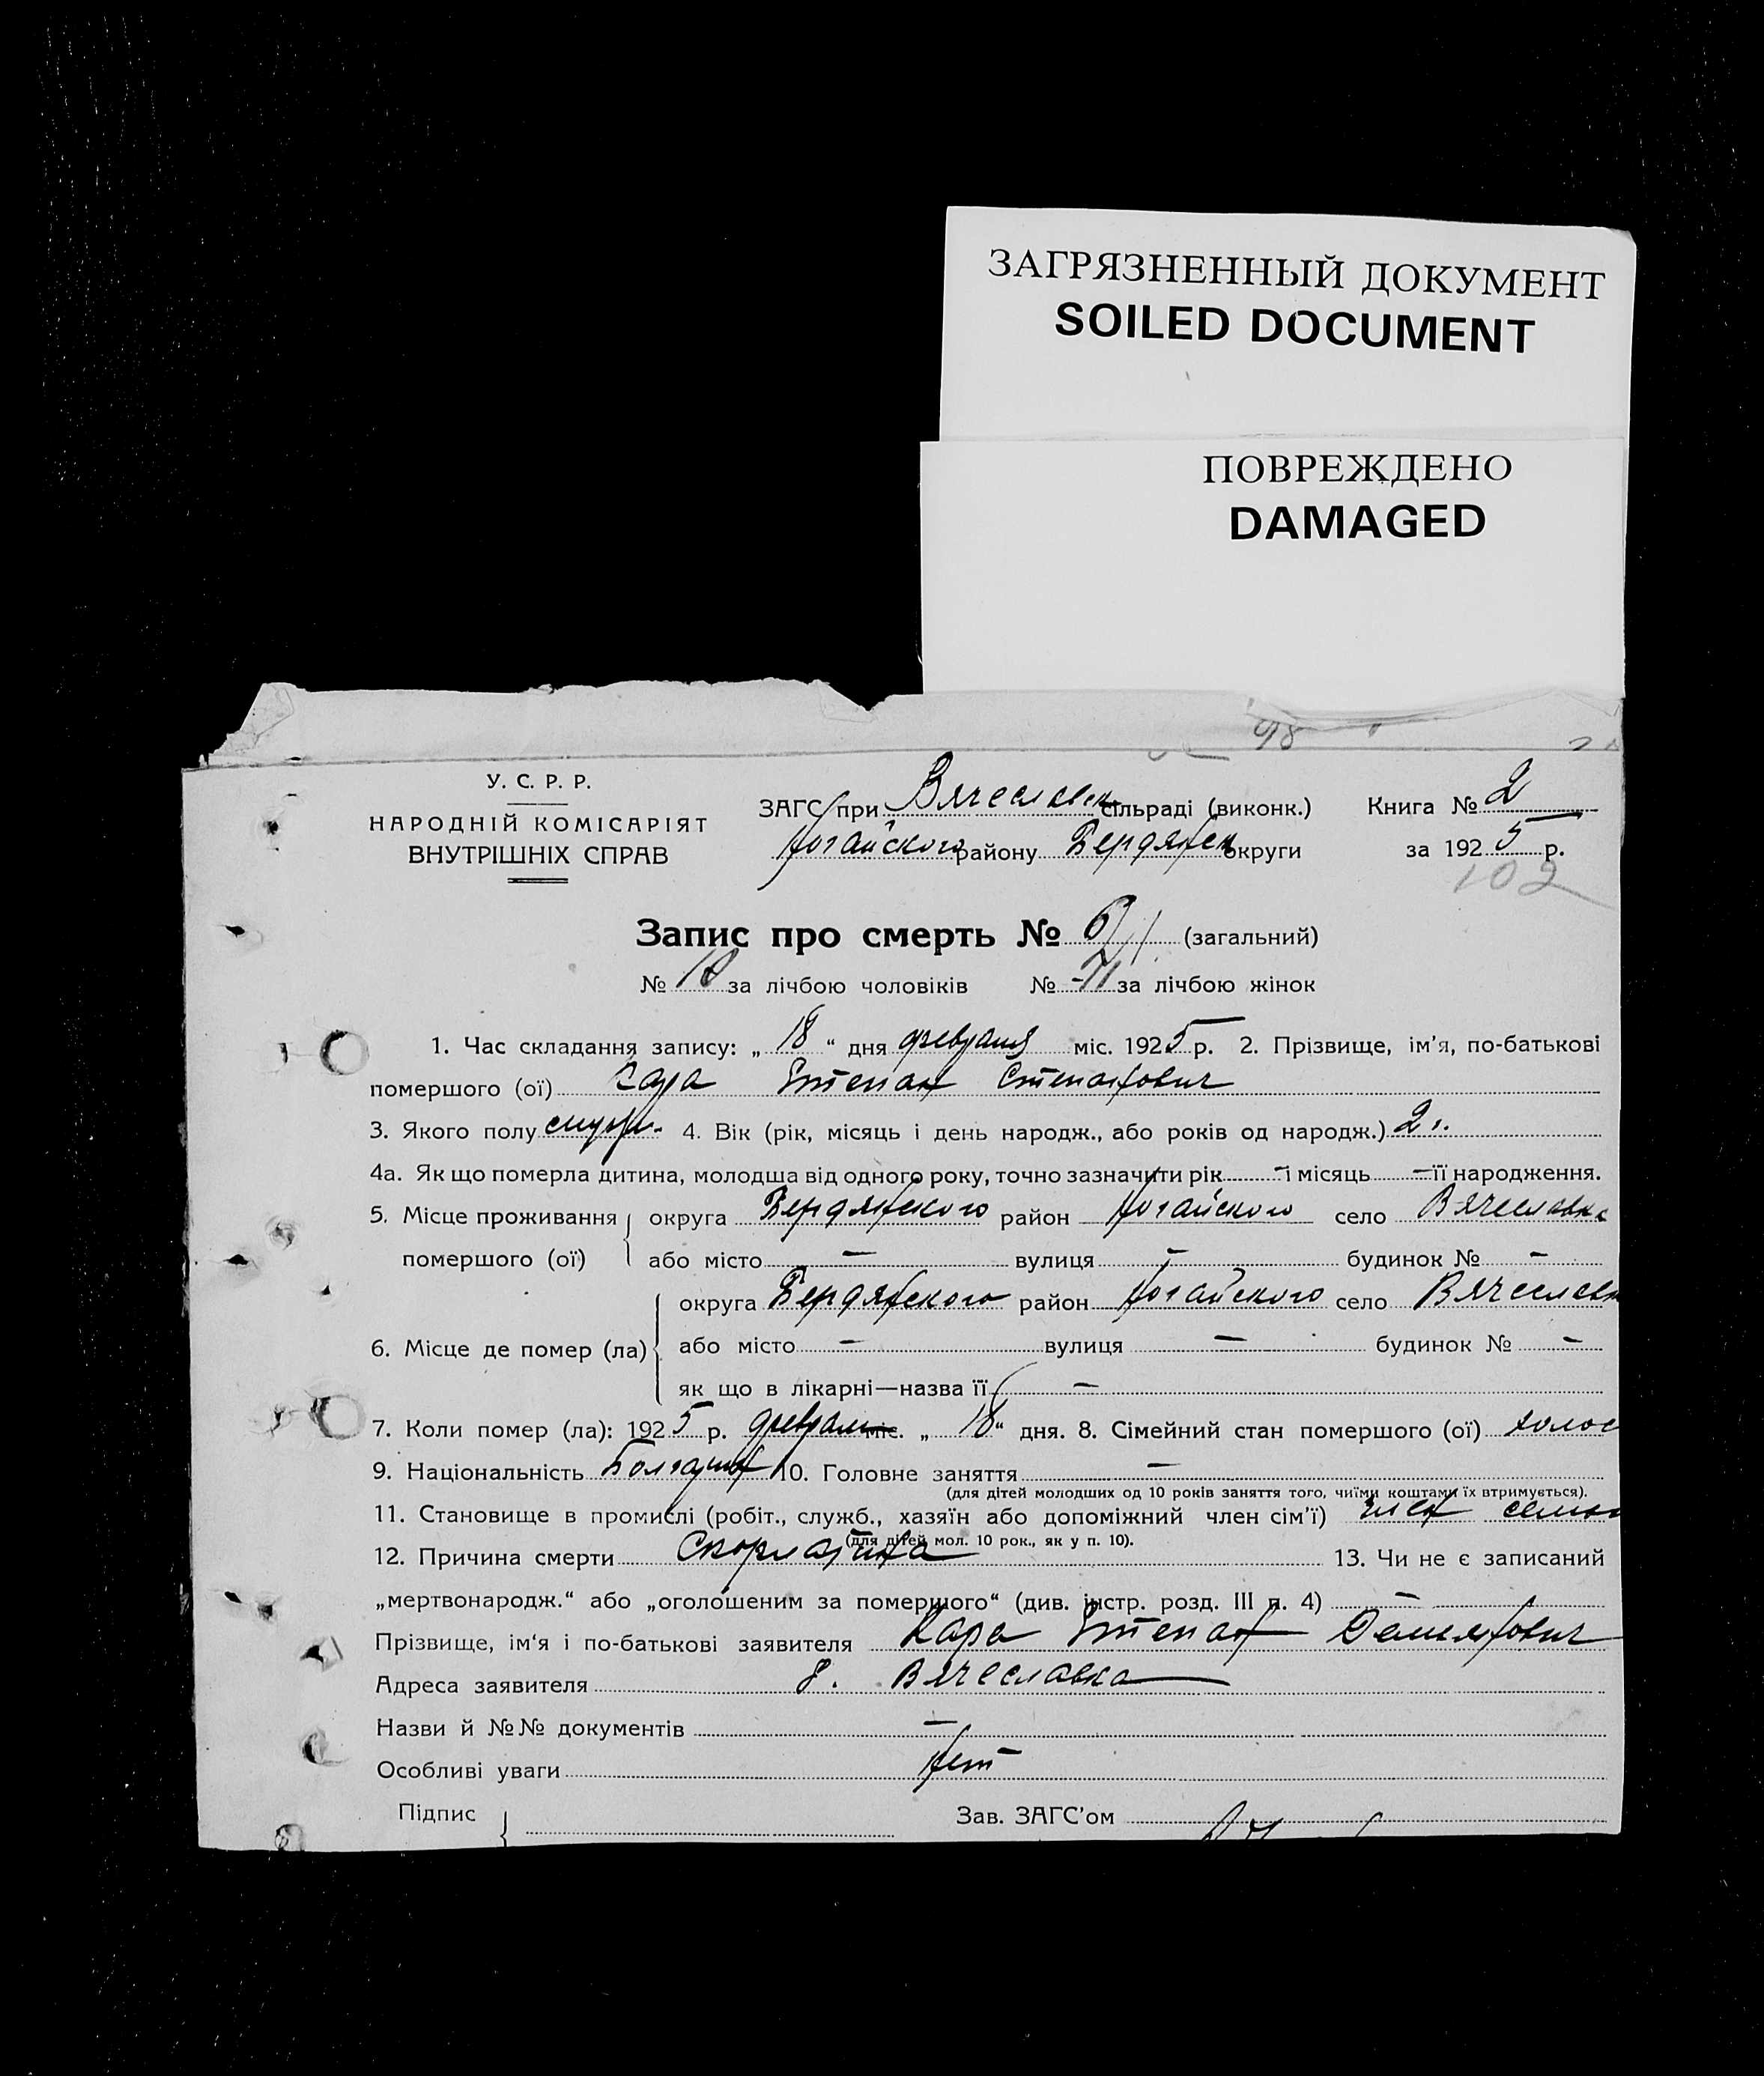 ЗАГРЯЗНЕННЫЙ ДОКУМЕНТ
SOILED DOCUMENT
ПОВРЕЖДЕНО
DAMAGED
98
У. С. Р. Р.
НАРОДНІЙ КОМІСАРІЯТ
ВНУТРІШНІХ СПРАВ
ЗАГС при Вячеславск сільраді (виконк.) Книга № 2
Ногайского району Бердянск округи за 1925 р.
102
Запис про смерть № (загальний)
№ за лічбою чоловіків № за лічбою жінок
1. Час складання запису: „18“ дня февраля міс. 1925 р. 2. Прізвище, ім’я, по-батькові
помершого (ої) Кара Степан Степанович
3. Якого полу 4. Вік (рік, місяць і день народж., або років од народж.) 2 г.
4а. Як що померла дитина, молодша від одного року, точно зазначити рік – і місяць – її народження.
5. Місце проживання округа Бердянского район Ногайского село Вячеславка
помершого (ої) або місто – вулиця – будинок № –
округа Бердянского район Ногайского село Вячеславк
6. Місце де помер (ла) або місто – вулиця – будинок № –
як що в лікарні—назва її –
7. Коли помер (ла): 1925 р. февраля міс. „18“ дня. 8. Сімейний стан помершого (ої) холос
9. Національність Болгарин 10. Головне заняття –
(для дітей молодших од 10 років заняття того, чиїми коштами їх втримується).
11. Становище в промислі (робіт., служб., хазяїн або допоміжний член сім’ї) член семьи
(для дітей мол. 10 рок., як у п. 10).
12. Причина смерти Скорлатина 13. Чи не є записаний
„мертвонародж.“ або „оголошеним за помершого“ (див. інстр. розд. III п. 4) –
Прізвище, ім‘я і по-батькові заявителя Кара Степан Демянович
Адреса заявителя Вячеславка
Назви й №№ документів –
Особливі уваги Нет
Підпис Зав. ЗАГС’ом